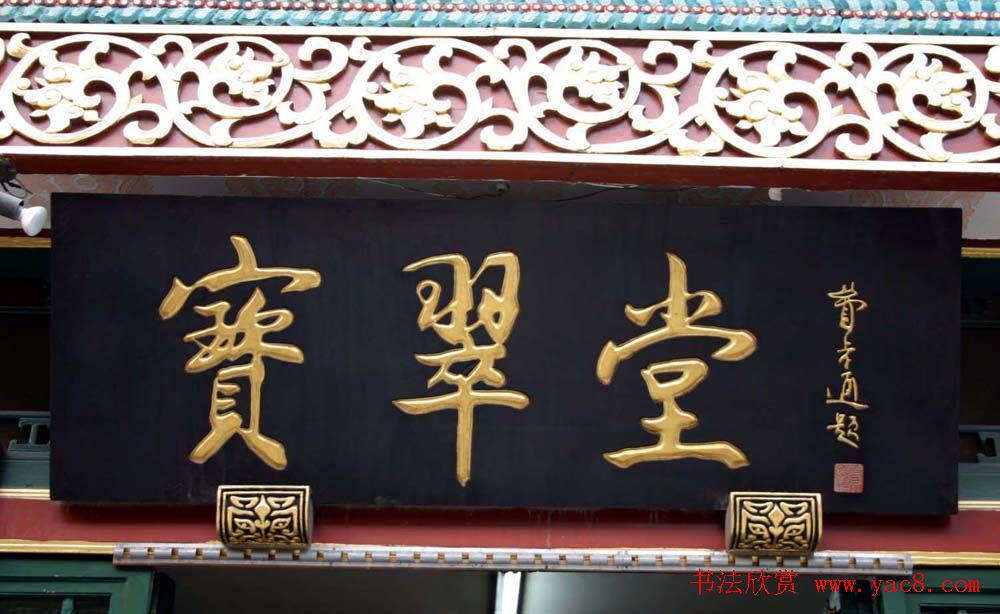 寶翠堂
費孝通題
书法欣赏 www.yac8.com